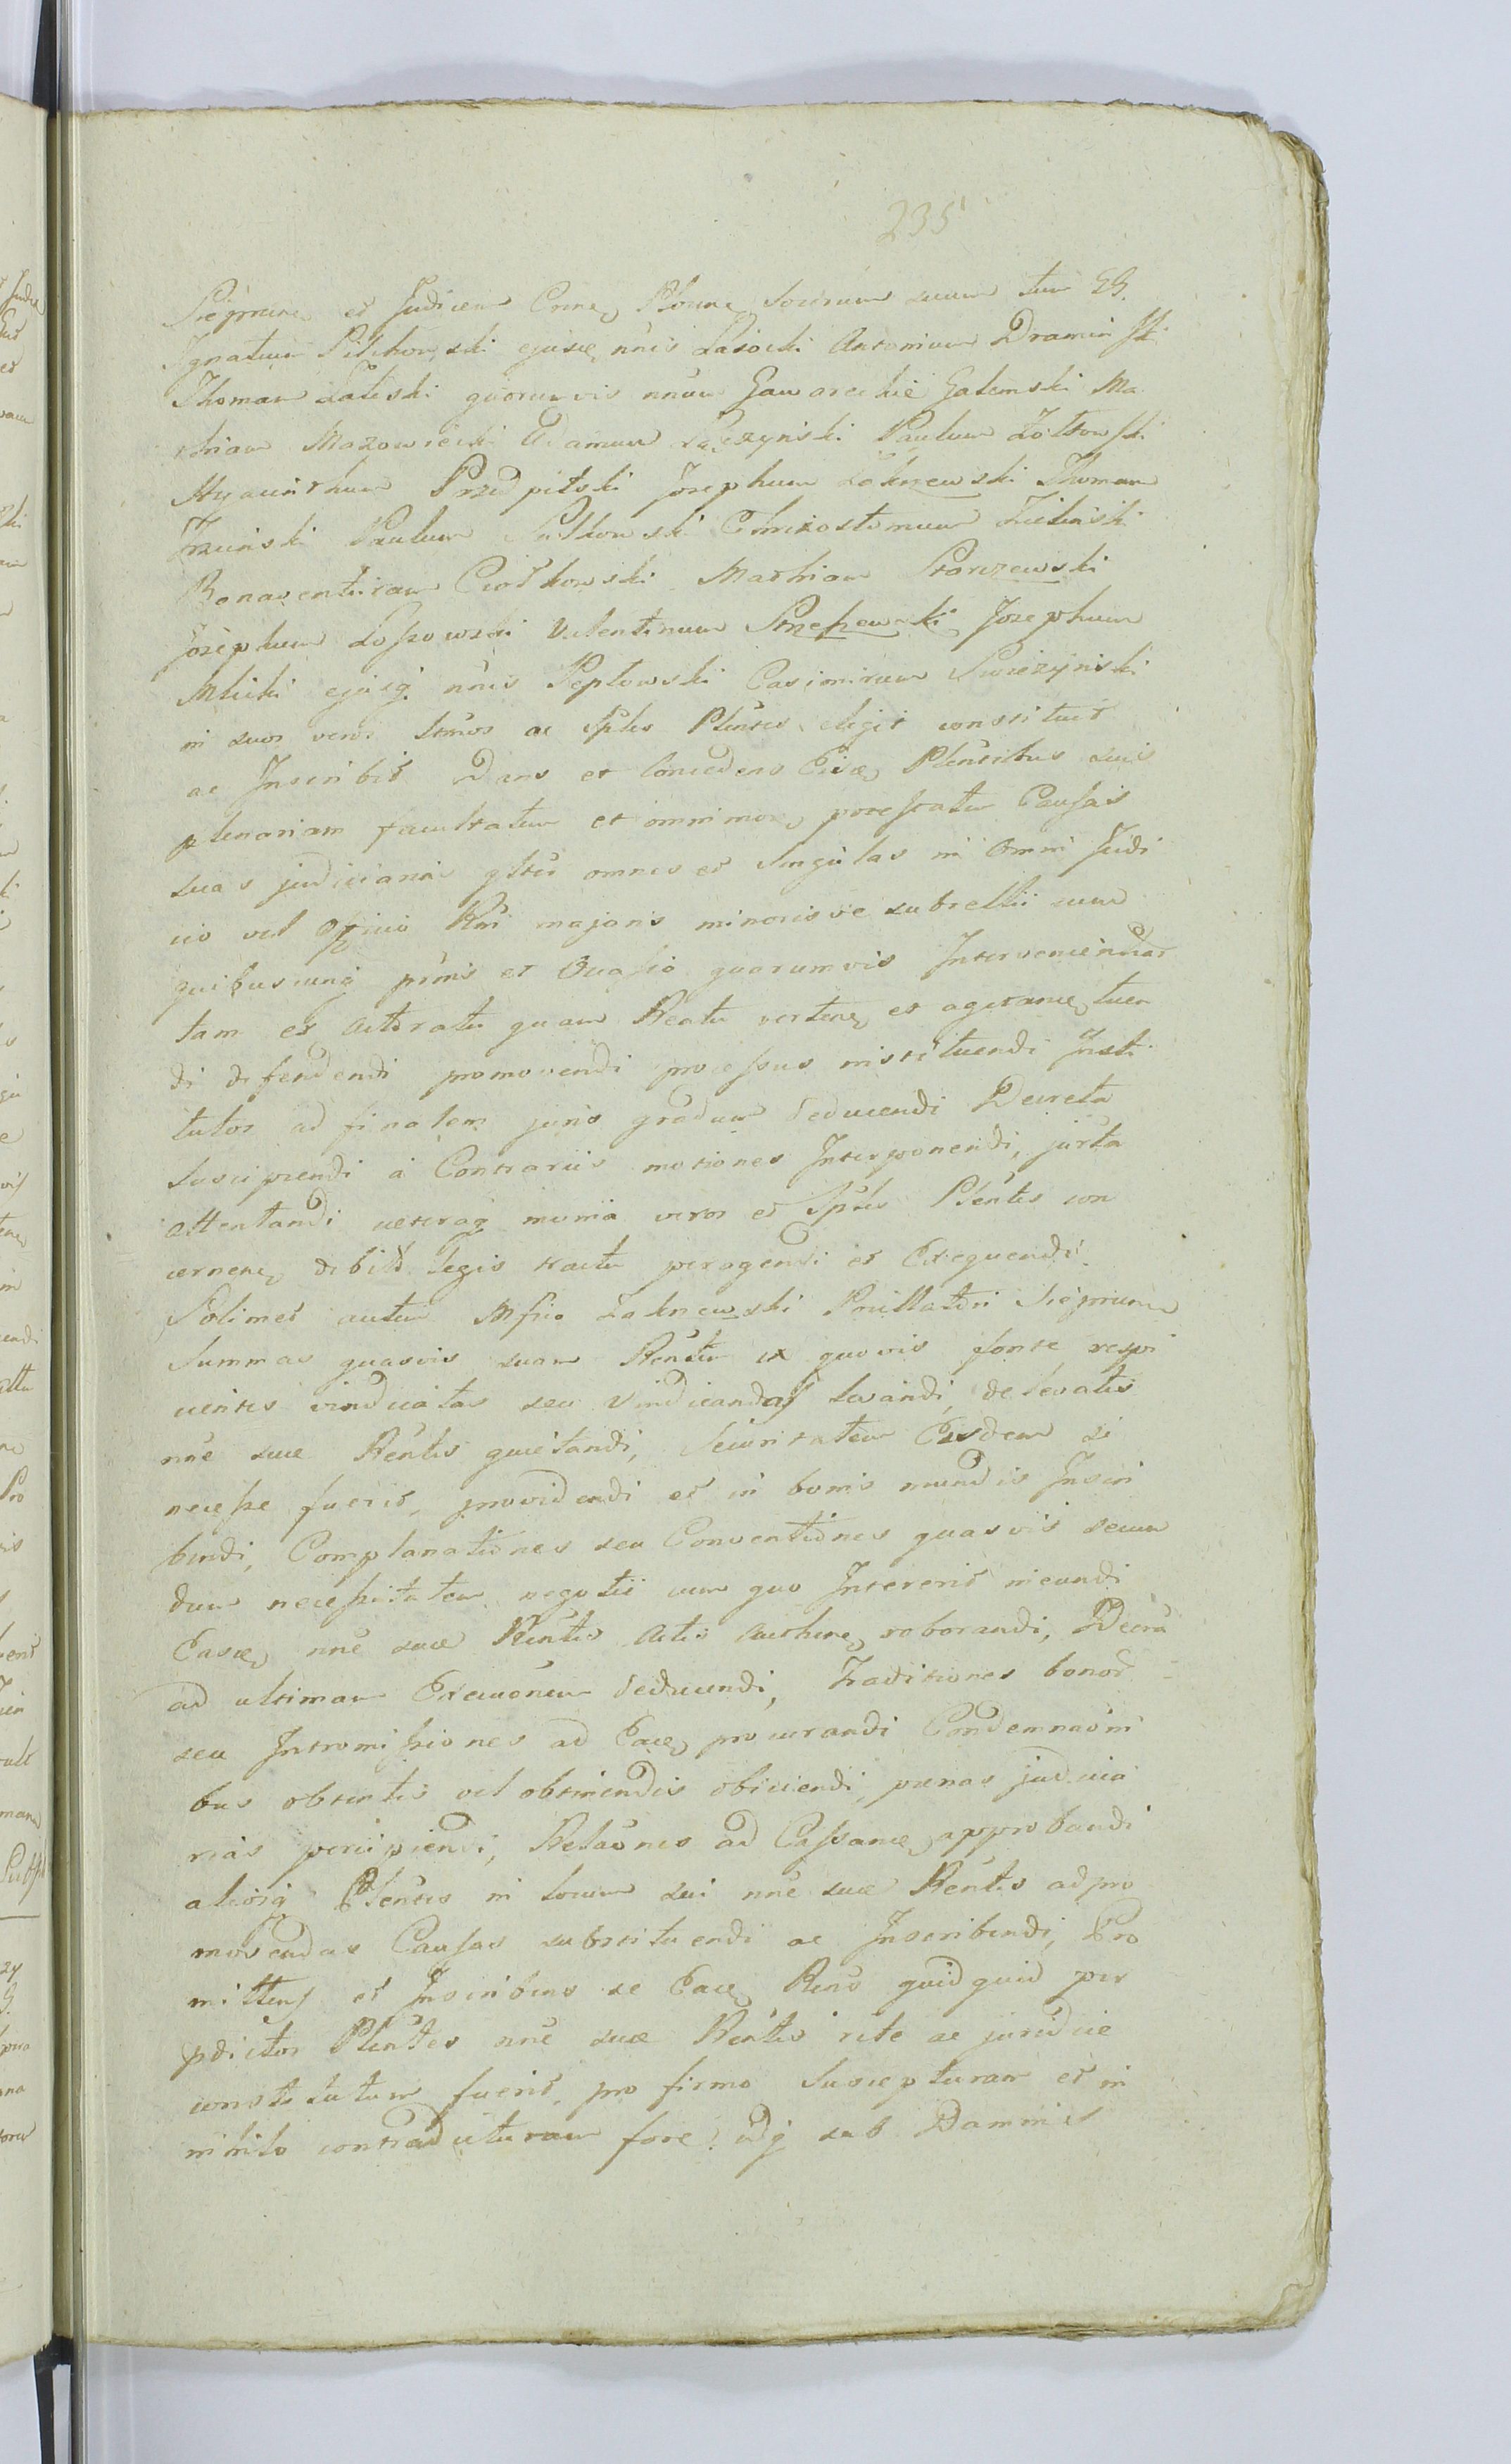 235
Siepmen et Judicem Crim Plonen Socerum suum tum GG.
Ignatium Pilchowski ejusd nnis Lasocki Antonium Dramin ski
Thomam Zaleski quorumvis nnum Gaworeckie Galemski Ma
thiam Mazowiecki Adamum Łączynski Paulum Żołtowski
Hyacinthum Przedpełski Josephum Zakrzewski Thomam
Paulum Sulkowski Chrisostomum Zielinski
Bonaventuram Ciołkowski Mathiam Starczewski
Josephum Lossowski Valentinum Josephum
Mlicki ejusq nnis Pepłowski Casimirum Swiezynski
in suos veros ltmos ac sples Plentes eligit constituit
ac Inscribit Dans et Concedens Eisd Plentibus suis
plenariam facultatem et omnimod potestatem Causas
suas judiciarias gltes omnes et Singulas in Omni Judi
cio vel Officio Rni majoris minorisve subsellii cum
quibuscunq psnis et Occasio quorumvis Intervenientiar
tam ex Actoratu quam Reatu verten et agitan tuen
di defendendi promovendi processus instituendi Insti
tutos ad finalem juris gradum deducendi Decreta
suscipiendi a Contrariis motiones Interponendi, jurta
attentandi ceteraq munia veros et Sples Plentes con
cernen debito legis tractu peragendi et Exequendi.
Solimet autem Mfico Zakrzewski Pnillatori Siepmen
Summas quasvis suam Rentem ex quovis fonte respi
cientes vindicatas seu vindicandas levandi, de levatis
nne suae Rentis quietandi, Securitatem Eisdem si
necesse fuerit, providendi et in bonis mundis Inscri
bendi, Complanationes seu Conventiones quasvis secun
dum necessitatem negotii cum quo Intererit ineundi
Easd nne suae Rentis Actis Authen roborandi, Decra
ad ultimam Execuonem deducendi, Traditiones bonor
seu Intromissiones ad Ead procurandi Condemnaoni
bus obtentis vel obtinendis obiiciendi, paenas judicia
rias percipiendi, Relaones ad Cassand approbandi
aliosq Plentes in locum sui nne suae Rentis ad pro
movendas Causas substituendi ac Inscribendi, Pro
mittens et Inscribens se Ead Rens quidquid per
pdictos Plentes nne suae Rentis rite ac juridice
constitutum fuerit, pro firmo Suscepturam et in
nihilo contradicturam fore, idq sub Damnis